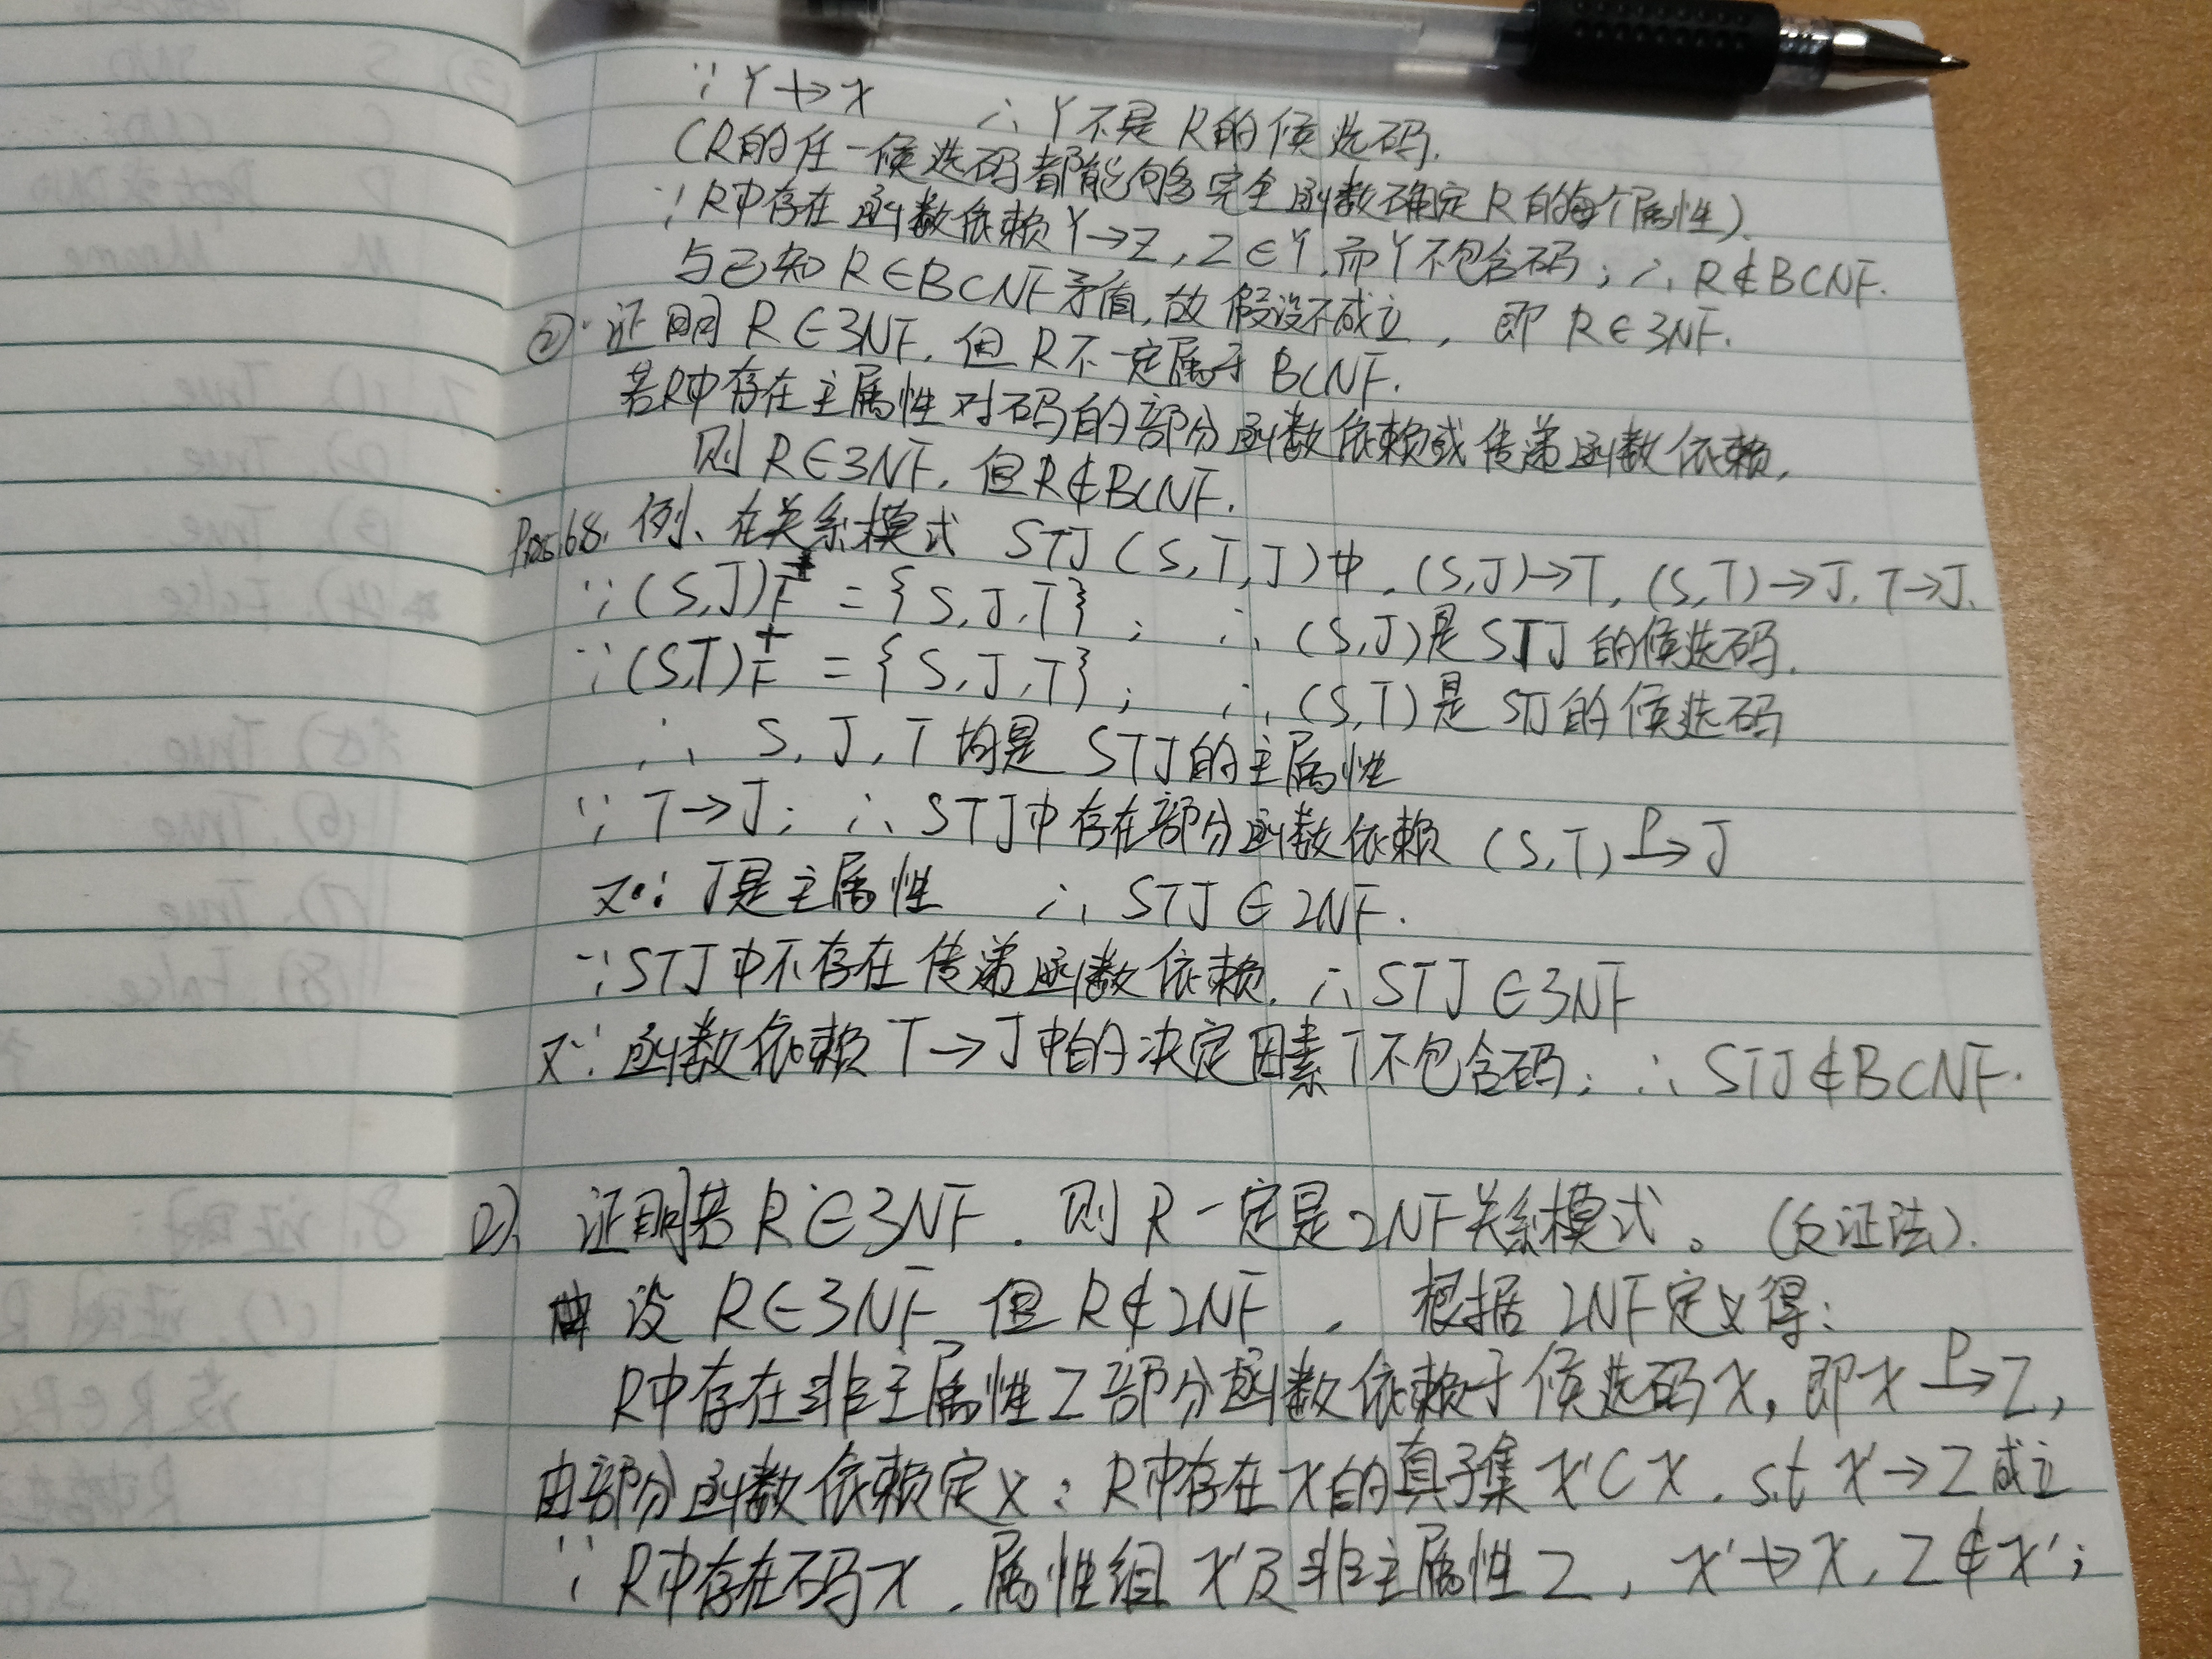 ∵ Y↛X ∴ Y不是R的候选码.
(R的任一候选码都能够完全函数确定R的每个属性).
∵ R中存在函数依赖Y→Z, Z∈Y, 而Y不包含码; ∴ R∉BCNF.
与已知R∈BCNF矛盾, 故假设不成立, 即R∈3NF.
② 证明R∈3NF, 但R不一定属于BCNF.
若R中存在主属性对码的部分函数依赖或传递函数依赖,
则R∈3NF, 但R∉BCNF.
例、在关系模式 STJ(S,T,J)中, (S,J)→T, (S,T)→J, T→J.
∵ (S,J)F⁺ = {S,J,T}; ∴ (S,J)是STJ的候选码.
∵ (S,T)F⁺ = {S,J,T}; ∴ (S,T)是STJ的候选码
∴ S,J,T均是STJ的主属性
∵ T→J; ∴ STJ中存在部分函数依赖 (S,T) P→ J
又∵ J是主属性 ∴ STJ∈2NF.
∵ STJ中不存在传递函数依赖. ∴ STJ∈3NF
又∵ 函数依赖T→J中的决定因素T不包含码; ∴ STJ∉BCNF.
2). 证明若R∈3NF, 则R一定是2NF关系模式。(反证法).
设R∈3NF 但R∉2NF, 根据2NF定义得:
R中存在非主属性Z部分函数依赖于候选码X, 即X P→ Z,
由部分函数依赖定义: R中存在X的真子集X'⊂X, s.t X'→Z成立
∵ R中存在码X, 属性组X'及非主属性Z, X'↛X, Z∉X';